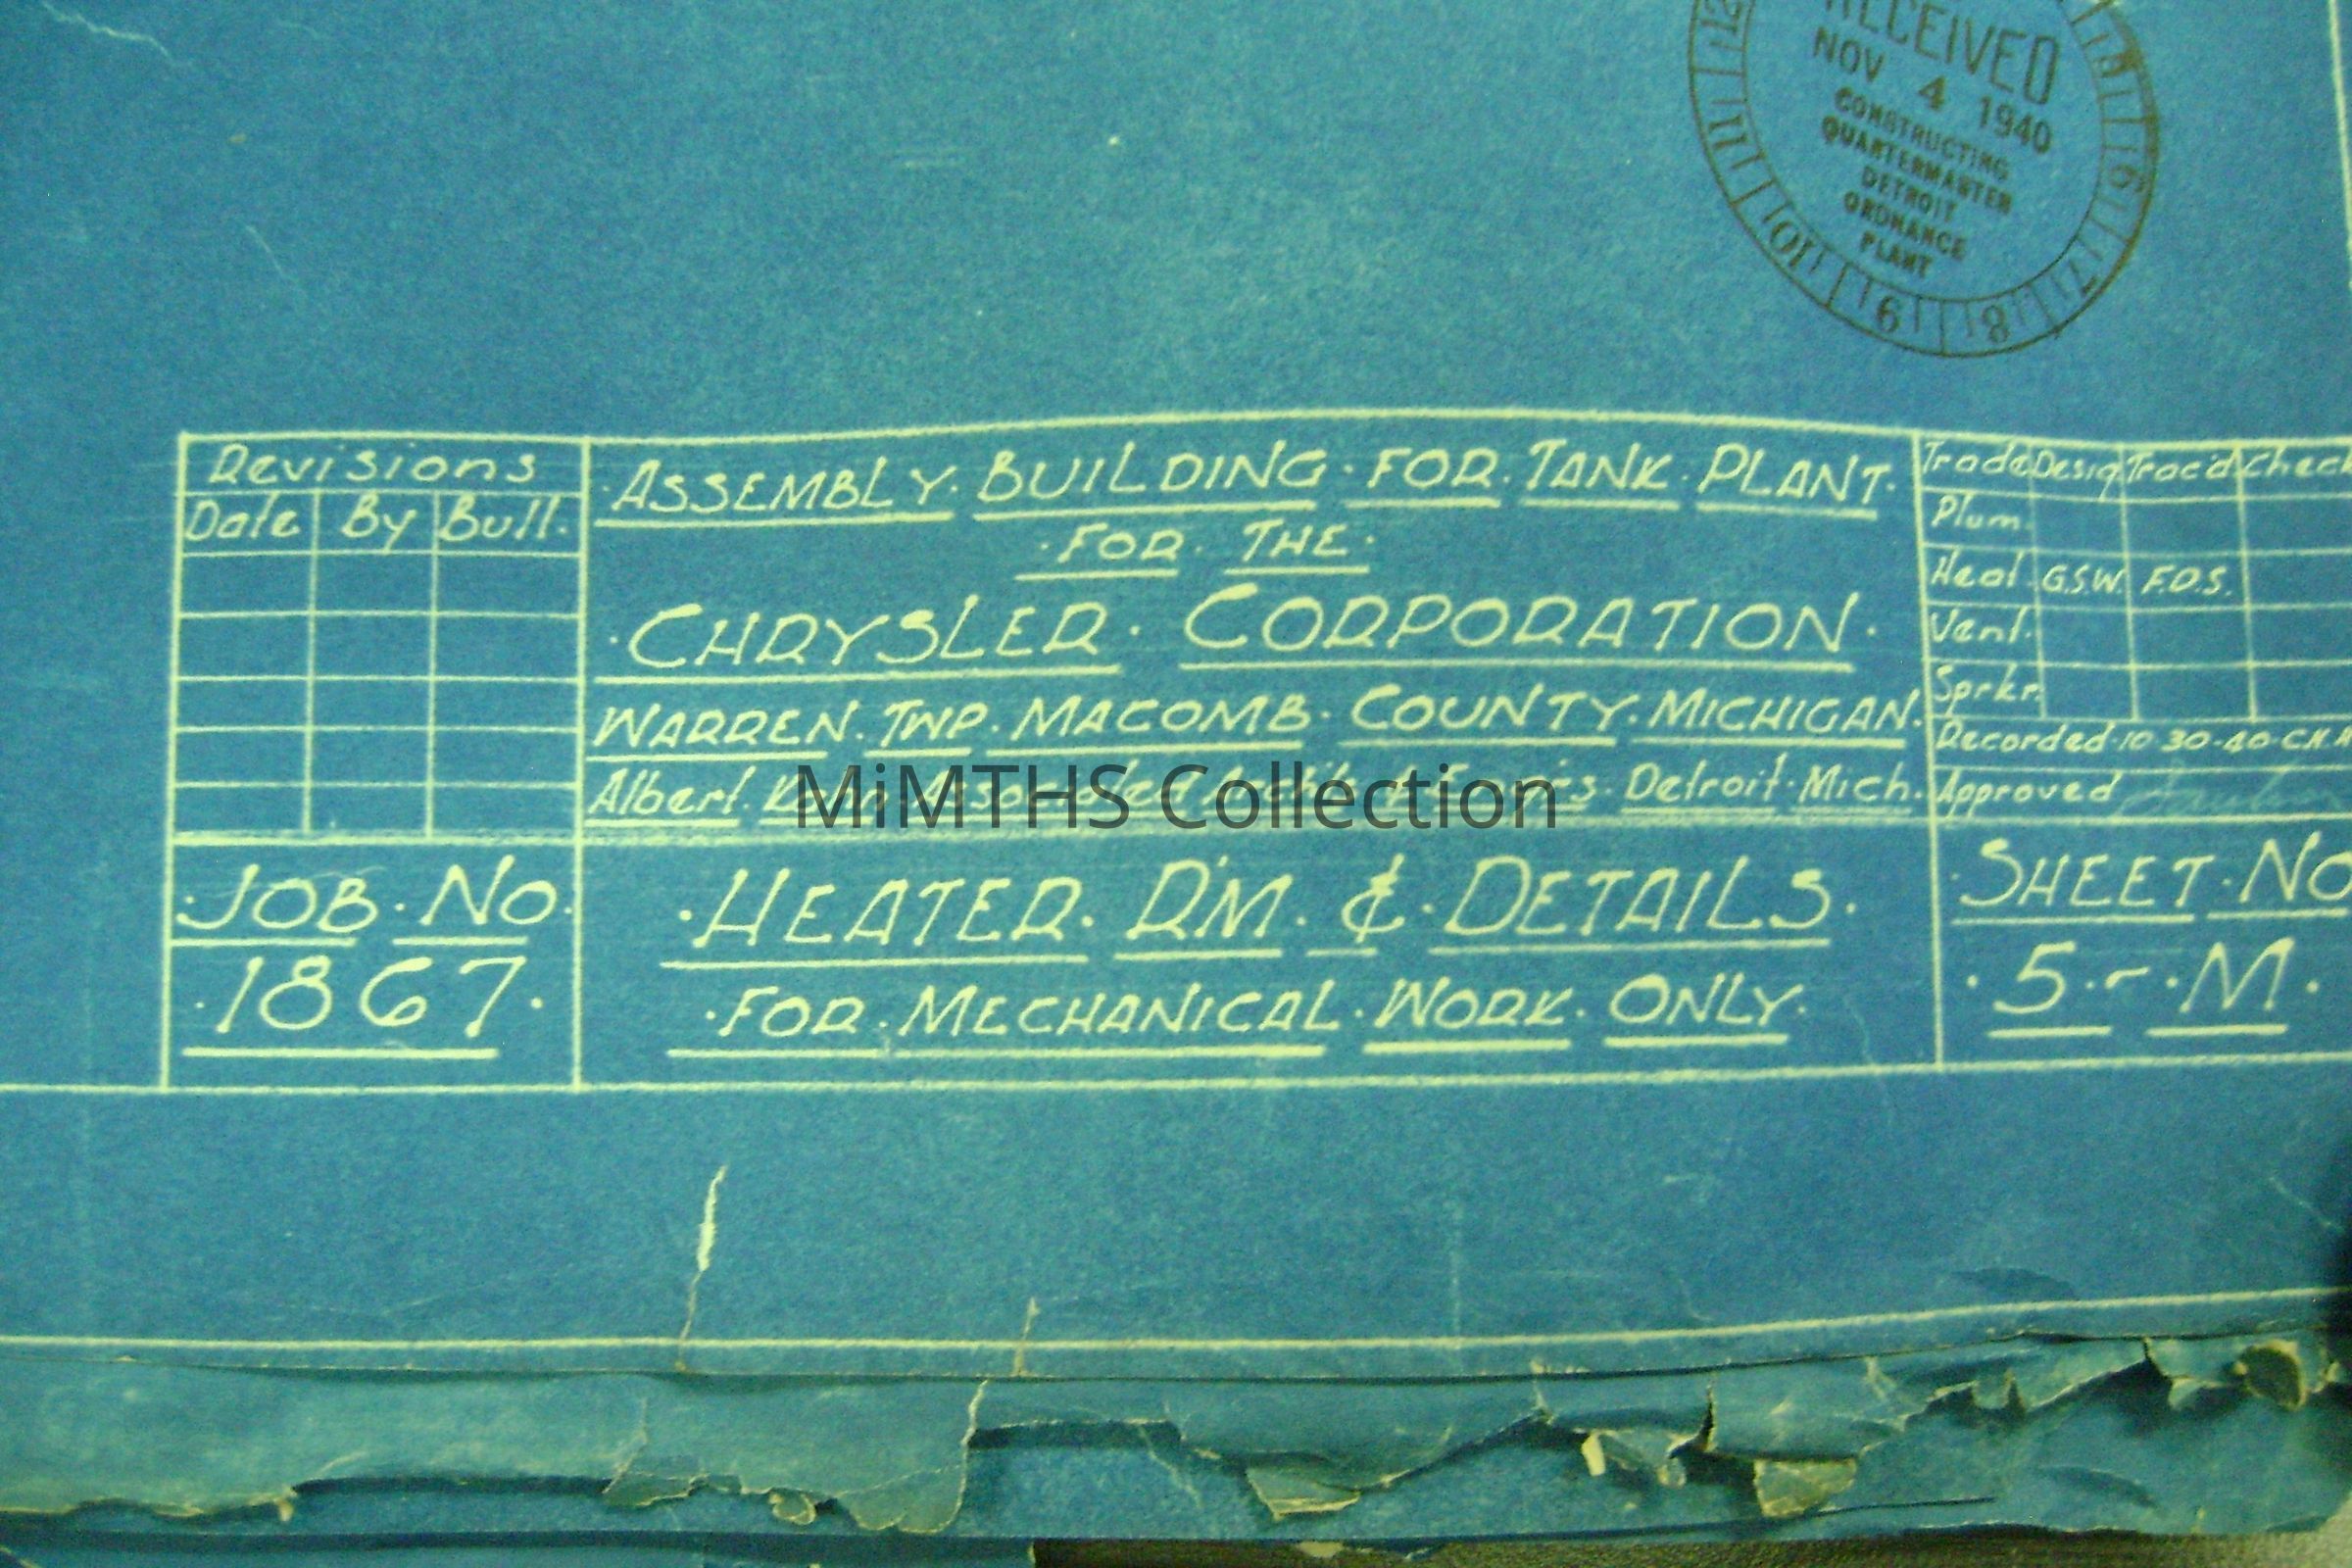 RECEIVED
NOV 4 1940
CONSTRUCTING
QUARTERMASTER
DETROIT
ORDNANCE
PLANT
12 11 10 9 8 7 6 5
Revisions
Date By Bull.
JOB · No.
· 1867 ·
· ASSEMBLY · BUILDING · FOR · TANK · PLANT ·
· FOR · THE ·
· CHRYSLER · CORPORATION ·
WARREN · TWP · MACOMB · COUNTY · MICHIGAN ·
Albert Detroit · Mich.
MiMTHS Collection
· HEATER · R'M · & · DETAILS ·
· FOR · MECHANICAL · WORK · ONLY ·
Trade Desig. Trac'd Check
Plum.
Heat. G.S.W. F.D.S.
Vent.
Sprkr.
Recorded · 10-30-40
Approved
· SHEET · NO
· 5 · - · M ·